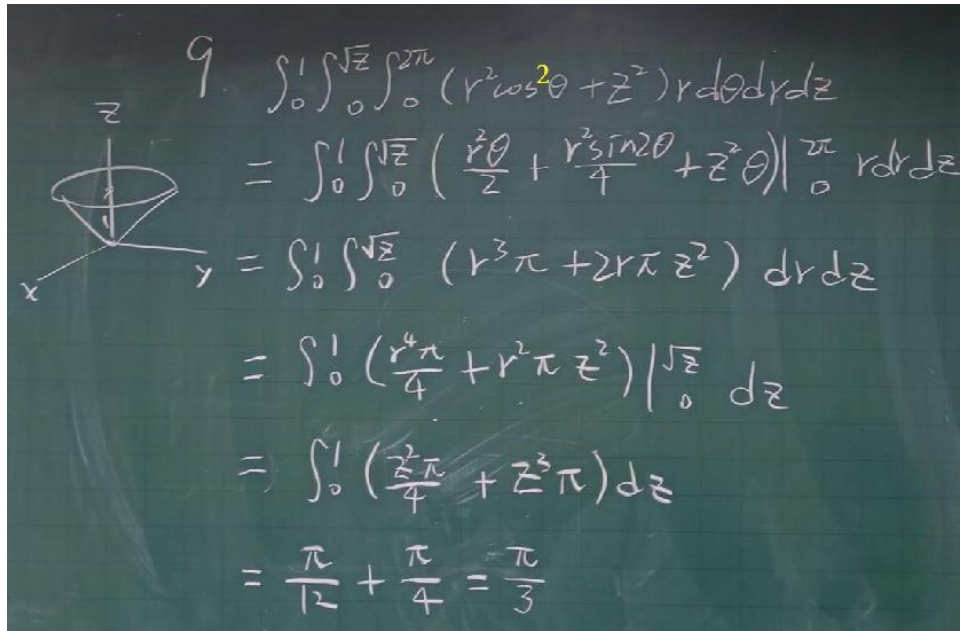 9. ∫₀¹ ∫₀^√z ∫₀^2π (r²cos²θ + z²) r dθ dr dz
z
= ∫₀¹ ∫₀^√z ( r²θ/2 + r²sin2θ/4 + z²θ)|₀^2π r dr dz
x
y
= ∫₀¹ ∫₀^√z (r³π + 2rπz²) dr dz
= ∫₀¹ (r⁴π/4 + r²πz²)|₀^√z dz
= ∫₀¹ (z²π/4 + z³π) dz
= π/12 + π/4 = π/3